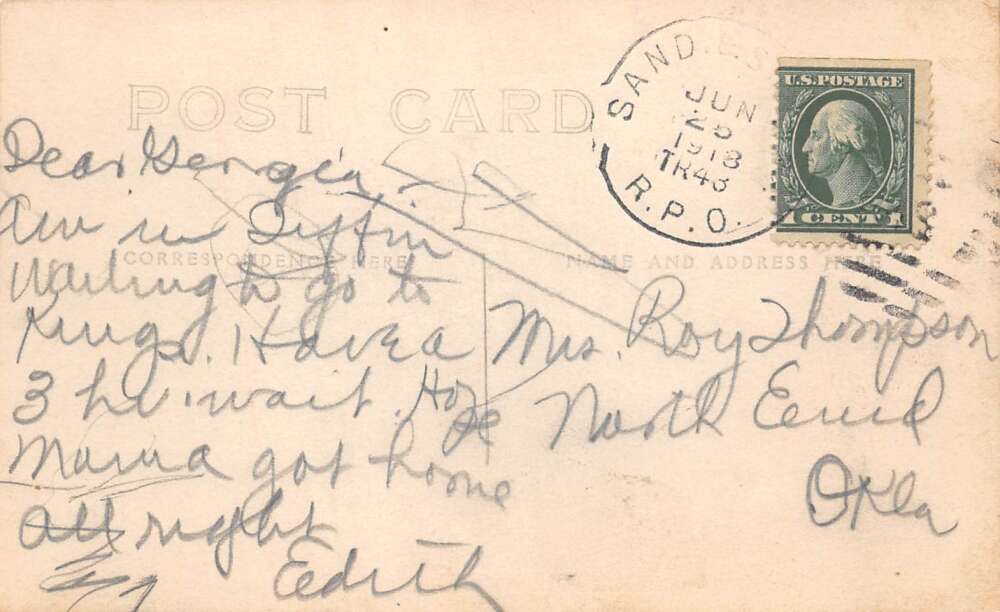 POST CARD
SAND. & S
JUN
25
1918
TR43
R.P.O.
U.S. POSTAGE
1 CENT 1
CORRESPONDENCE HERE
NAME AND ADDRESS HERE
Dear Georgia.
Am in Tiffin
Waiting to go to
Kings. Have a
3 hr. wait. Hope
Mama got home
all right
Edith
Mrs. Roy Thompson
North Enid
Okla